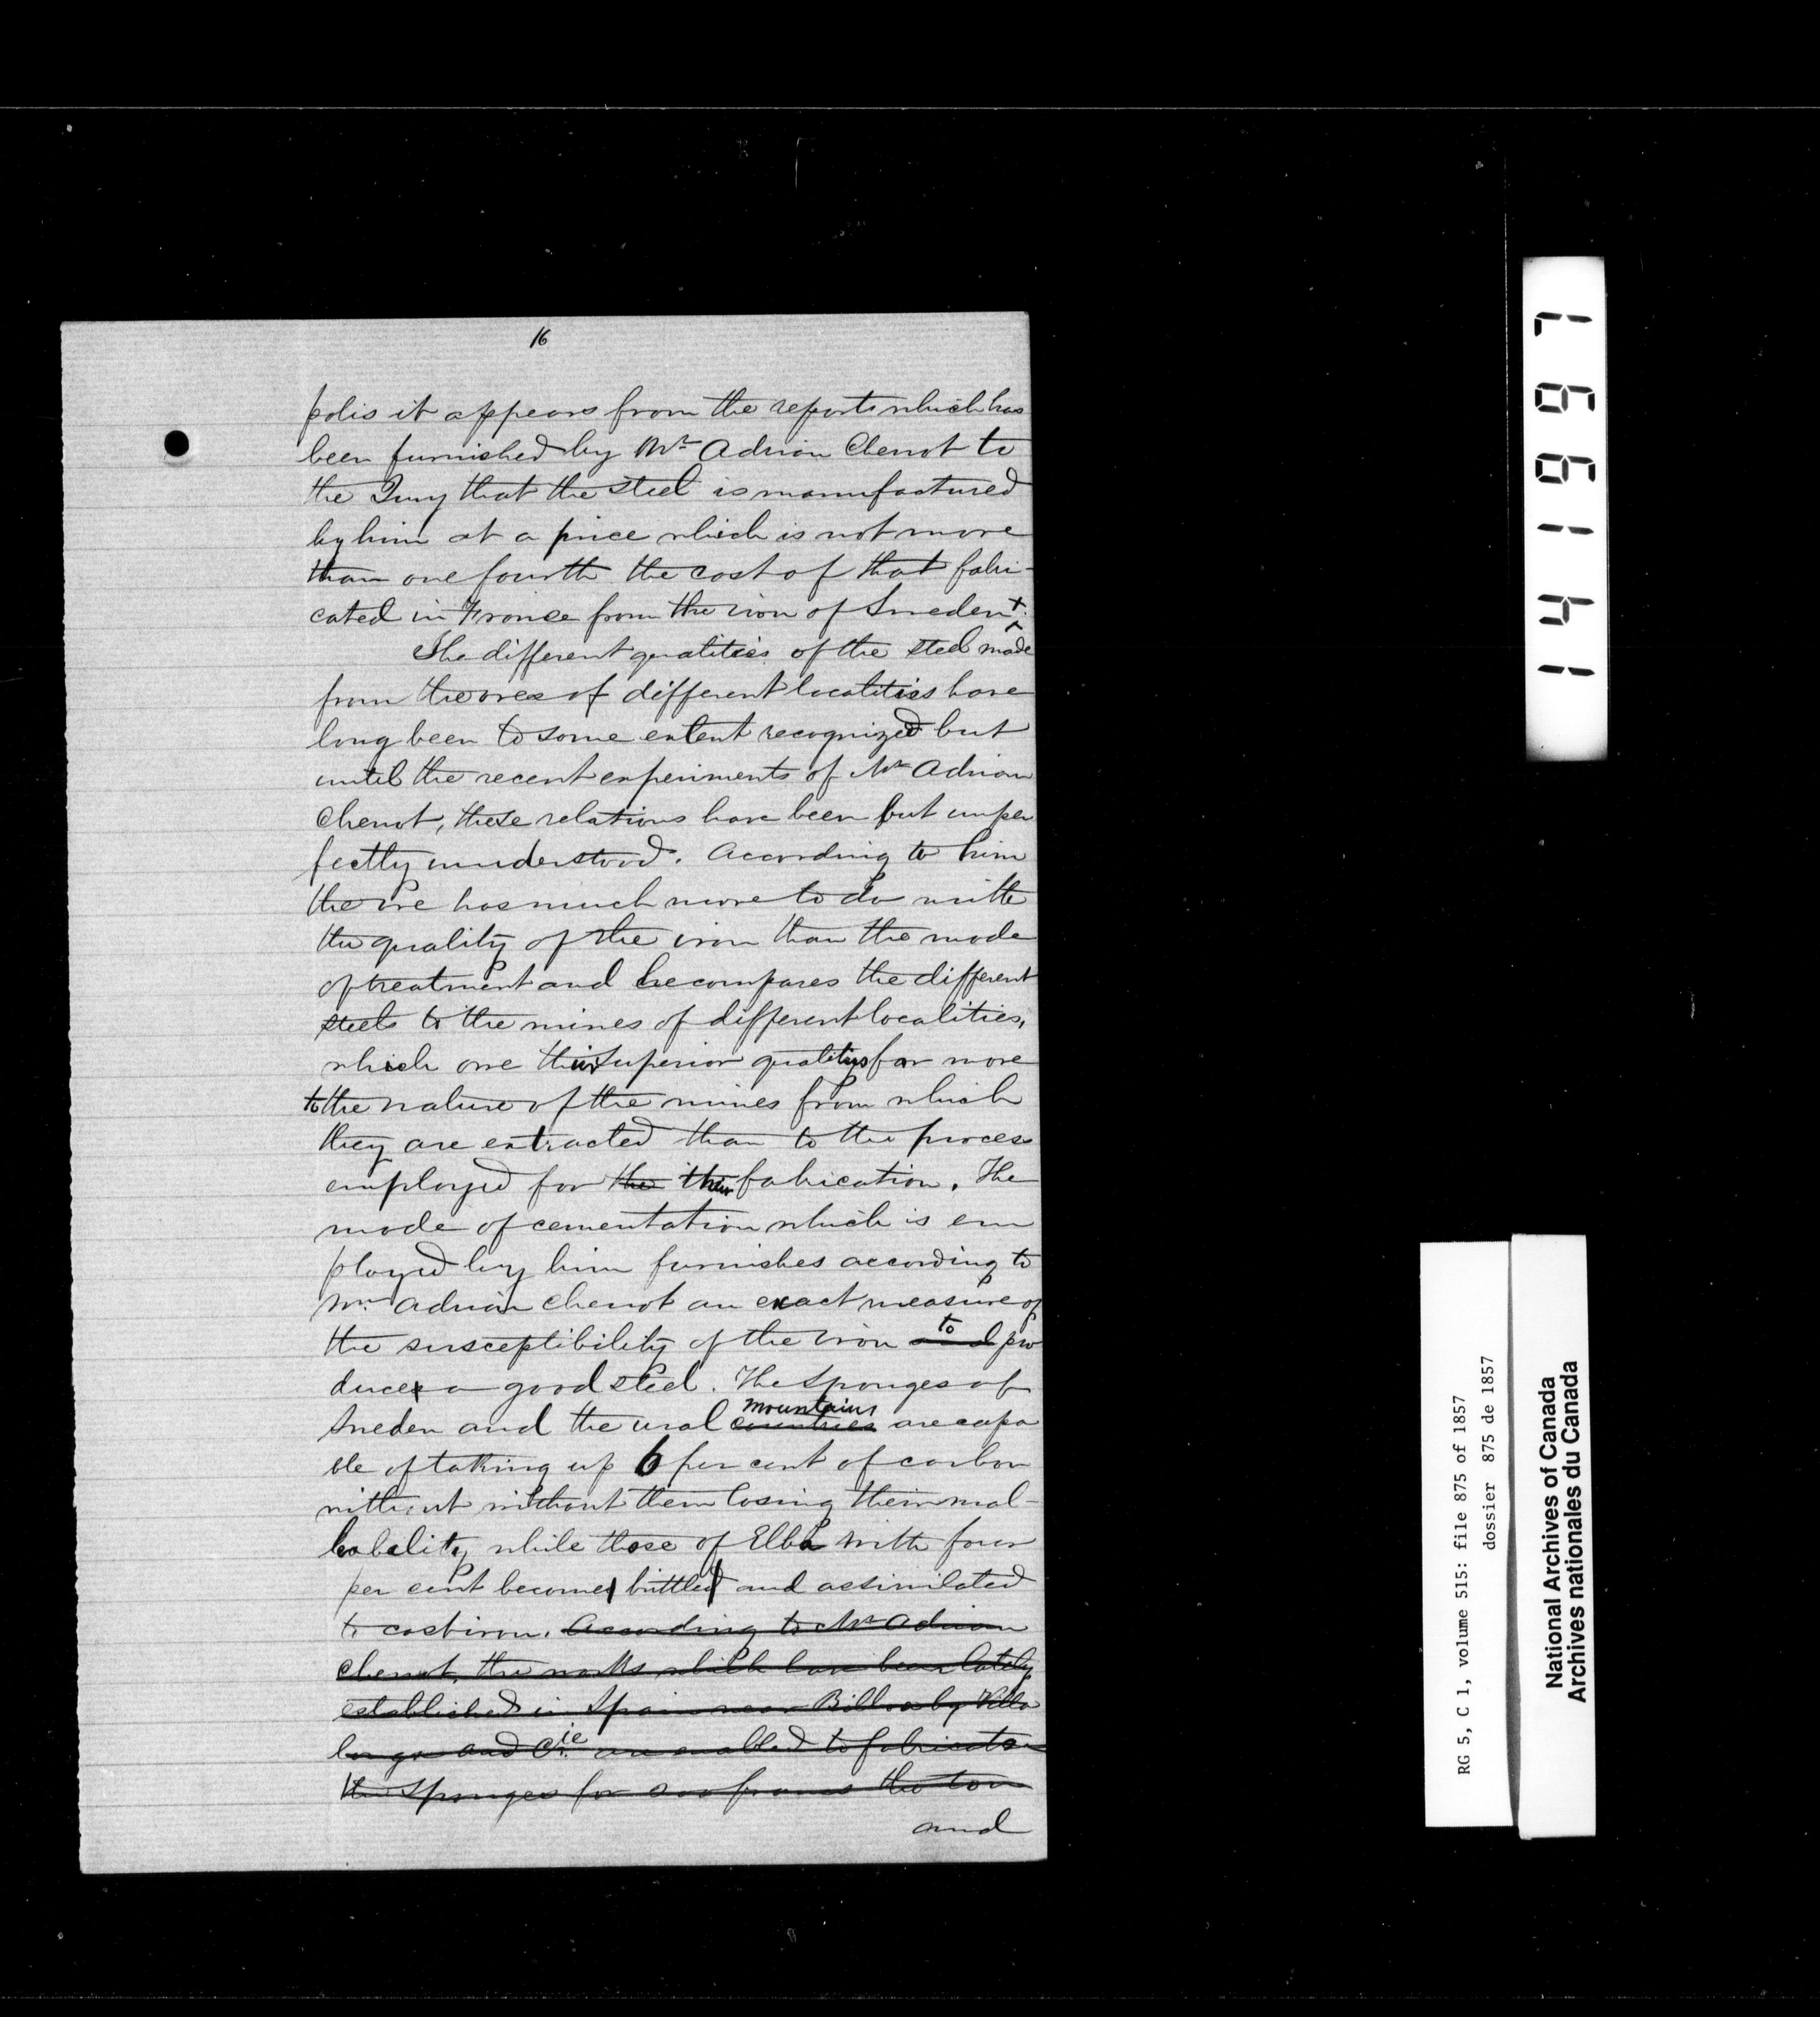 16
polis it appears from the reports which has
been furnished by Mr Adrian Chenot to
the Jury that the steel is manufactured
by him at a price which is not more
than one fourth the cost of that fabri-
cated in France from the iron of Sweden +.
The different qualities of the steel made
from the ores of different localities have
long been to some extent recognized but
until the recent experiments of Mr Adrian
Chenot, these relations have been but imper
fectly understood. According to him
the ore has much more to do with
the quality of the iron than the mode
of treatment and he compares the different
steels to the mines of different localities,
which owe their superior qualities far more
to the nature of the mines from which
they are extracted than to the process
employed for the their fabrication. The
mode of cementation which is em
ployed by him furnishes according to
Mr. Adrian Chenot an exact measure of
the susceptibility of the iron and to pro
duce a good steel. The sponges of
Sweden and the ural countries mountains are capa
ble of taking up 6 per cent of carbon
without without them losing their mal-
leability while those of Elba with four
per cent become brittle and assimilated
to cast iron. According to Mr Adrian
Chenot, the works which have been lately
established in Spain near Bilboa by Villa
longa and Cie. are enabled to fabricate
the sponges for 200 francs the ton
and
141997
RG 5, C 1, volume 515: file 875 of 1857
dossier 875 de 1857
National Archives of Canada
Archives nationales du Canada